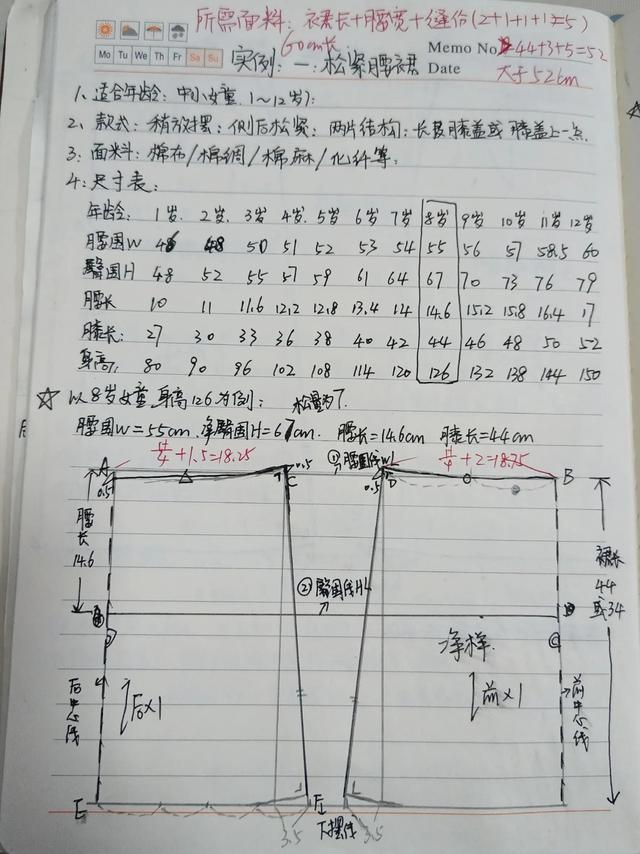 所需面料：裙长+腰宽+缝份(2+1+1+1=5)
60cm长
44+3+5=52
大于52cm
Memo No.
Mo Tu We Th Fr Sa Su
Date
实例：一：松紧腰裙
1、适合年龄：中小女童，1～12岁；
2、款式：稍放摆；侧后松紧；两片结构；长及膝盖或膝盖上一点.
3：面料：棉布/棉绸/棉麻/化纤等；
4：尺寸表：
年龄：1岁. 2岁. 3岁 4岁. 5岁 6岁 7岁 8岁 9岁 10岁 11岁 12岁
腰围W 46 48 50 51 52 53 54 55 56 57 58.5 60
臀围H 48 52 55 57 59 61 64 67 70 73 76 79
腰长 10 11 11.6 12.2 12.8 13.4 14 14.6 15.2 15.8 16.4 17
膝长：27 30 33 36 38 40 42 44 46 48 50 52
身高： 80 90 96 102 108 114 120 126 132 138 144 150
☆ 以8岁女童身高126为例： 松量为7.
腰围W=55cm. 净臀围H=67cm. 腰长=14.6cm 膝长=44cm
A
H/4+1.5=18.25
0.5
C
①腰围线WL
D
H/4+2=18.75
B
0.5
0.5
腰长
14.6
裙长
44
或34
②臀围线HL
净样.
后中心线
后×1
前×1
前中心线
E
F
下摆线
3.5
3.5